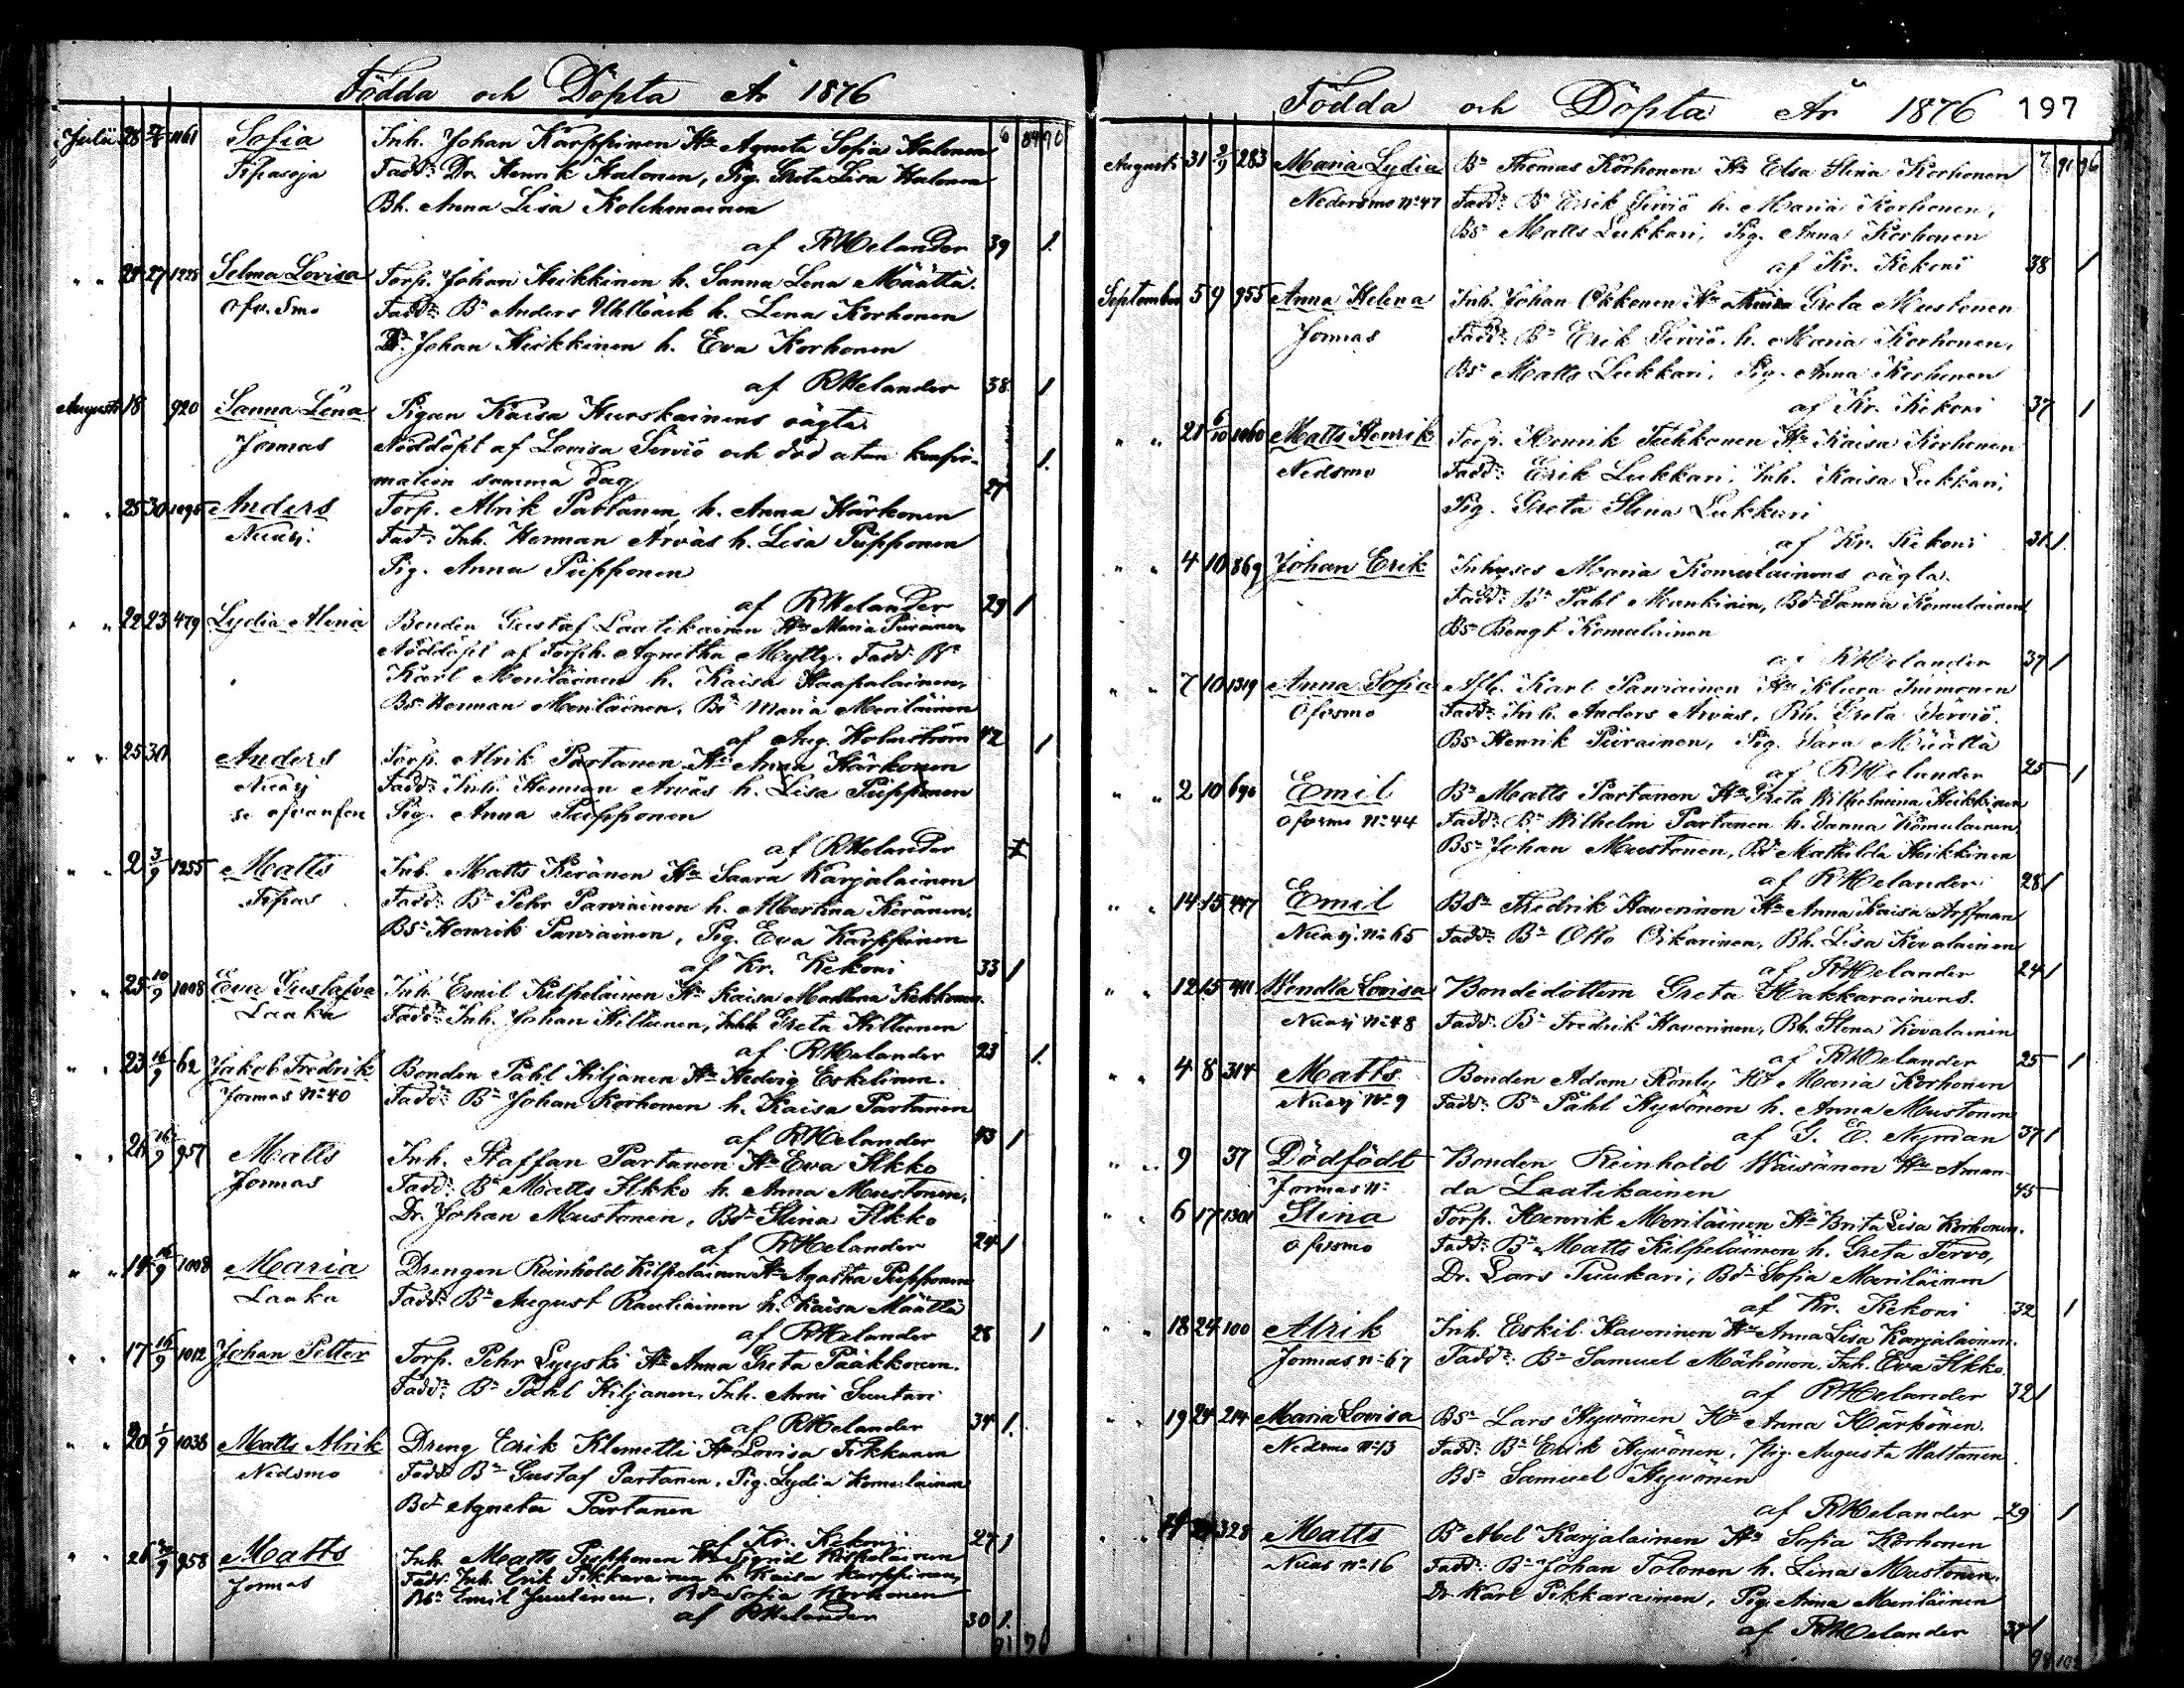 Födda och Döpta År 1876
Julii 28 1161 Sofia Inh. Johan Karppinen Hu Agneta Sofia Halonen 6 89 70
Tipasoja Fadd: Dr. Henrik Halonen, Pig. Greta Lisa Halonen
Bh. Anna Lisa Kolehmainen
af RMelander 39 1.
" " 24 27 1225 Selma Lovisa Torp. Johan Heikkinen h. Sanna Lena Määttä.
Öfv. Smo Fadd: Bn Anders Uhlbäck h. Lena Korhonen
Dr. Johan Heikkinen h. Eva Korhonen
af RMelander 38 1
Augusti 18 920 Sanna Lena Pigan Kaisa Hurskainens oägta
Jormas Nöddöpt af Lovisa Serviö och död utan konfir-
mation samma dag 27 1.
" " 25 30 1095 Anders Torp. Alrik Partanen, h. Anna Härkonen
Nuasj. Fad: Inh. Herman Arväs h. Lisa Piipponen
Pig. Anna Piipponen
af RMelander 29 1
" " 22 23 479 Lydia Alina Bonden Gustaf Laatikainen Hu Maria Piirainen
Nöddöpt af Torph. Agnetha Mylly. Fadd: Bn
Karl Meriläinen h. Kaisa Haapalainen,
Bs Herman Meriläinen, Bd Maria Meriläinen
af Aug. Holmström 42 1
" " 25 30 Anders Torp. Alrik Partanen Hu Anna Härkonen
Nuasj Fadd: Inh. Herman Arväs h. Lisa Piipponen
se ofvanfen Pig. Anna Piipponen
af RMelander
" " 2 3/9 1255 Matts Inh. Matts Keränen Hu Saara Karjalainen
Tipas Fadd: Bn Pehr Parviainen h. Albertina Keränen,
Bs Henrik Parviainen, Pig. Eva Karppinen
af Kr. Kekoni 33 1
" " 25 10/9 1008 Eva Gustafva Inh. Emil Kilpeläinen Hu Kaisa Madlena Kekkonen.
Laaka Fadd: Inh. Johan Hiltunen, Inh. Greta Hiltunen
af RMelander 23 1.
" " 23 16/9 62 Jakob Fredrik Bonden Påhl Kiljanen Hu Hedvig Eskelinen.
Jormas No 40 Fadd: Bn Johan Korhonen h. Kaisa Partanen
af RMelander 43 1
" " 24 16/9 957 Matts Inh. Staffan Partanen Hu Eva Ilkko
Jormas Fadd: Bn Matts Ilkko h. Anna Mustonen,
Dr. Johan Mustonen, Bd Stina Ilkko
af RMelander 24 1
" " 14 16/9 1008 Maria Drengen Reinhold Kilpelainen Hu Agatha Piipponen
Laaka Fadd: Bn August Rautiainen h. Kaisa Määttä
af RMelander 28 1
" " 17 16/9 1012 Johan Petter Torp. Pehr Lyyski Hu Anna Greta Pääkkonen.
Fadd: Bn Påhl Kiljanen, Inh. Anni Suutari
af RMelander 34 1.
" " 20 1/9 1038 Matts Alrik Dreng Erik Klemetti Hu Lovisa Tikkanen
Nedsmo Fadd: Bn Gustaf Partanen, Pig. Lydia Komulainen
Bd Agneta Partanen
af Kr. Kekoni 27 1
" " 26 958 Matts Inh. Matts Piipponen Hu Sigrid Kilpelainen
Jormas Fadd: Inh. Erik Pikkarainen h. Kaisa Karppinen,
Bs Emil Juntunen, Bd Sofia Korhonen
af RMelander 30 1.
91 76
Födda och Döpta År 1876 197
Augusti 31 2/9 283 Maria Lydia Bn Thomas Korhonen Hu Elsa Stina Korhonen 7 91 76
Nedersmo No 47 Fadd: Bn Erik Serviö h. Maria Korhonen,
Bs Matts Lukkari, Pig. Anna Korhonen
af Kr. Kekoni 38 1
September 5 9 955 Anna Helena Inh. Johan Okkonen Hu Greta Mustonen
Jormas Fadd: Bn Erik Serviö h. Maria Korhonen,
Bs Matts Lukkari, Pig. Anna Korhonen
af Kr. Kekoni 37 1
" " 21 6/10 1060 Matts Henrik Torp. Henrik Tukkonen Hu Kaisa Korhonen
Nedsmo Fadd: Erik Lukkari, Inh. Kaisa Lukkari,
Pig. Greta Stina Lukkari
af Kr. Kekoni 31 1.
" " 4 10 869 Johan Erik Inhyses Maria Komulainens oägta.
Fadd: Bn Påhl Mankinen, Bd Sanna Komulainen
Bs Bengt Komulainen
af RMelander 37 1
" " 7 10 1319 Anna Sofia Afl. Karl Parviainen Hu Klara Immonen
Öfvsmo Fadd: Inh. Anders Arväs, Bh. Greta Serviö.
Bs Henrik Piirainen, Pig. Sara Määttä
af RMelander 25 1
" " 2 10 690 Emil Bn Matts Partanen Hu Greta Wilhelmina Heikkinen
Öfvsmo No 44 Fadd: Bn Wilhelm Partanen h. Sanna Komulainen,
Bs Johan Mustonen, Bd Mathilda Heikkinen
af RMelander 28 1
" " 14 15 447 Emil Bs Fredrik Haverinen Hu Anna Kaisa Arffman
Nuasj. No 65 Fadd: Bn Otto Oikarinen, Bh. Lisa Kovalainen
af RMelander 24 1
" " 12 15 411 Wendla Lovisa Bondedottern Greta Hakkarainens.
Nuasj No 48 Fadd: Bn Fredrik Haverinen, Bh. Stena Kovalainen
af RMelander 25 1
" " 4 8 314 Matts Bonden Adam Ronty Hu Maria Korhonen
Nuasj No 9 Fadd: Bn Påhl Hyvönen h. Anna Mustonen
af G. E. Nyman 37 1
" " 9 37 Dödfödt Bonden Reinhold Wäisänen Hu Aman-
Jormas No da Laatikainen 45
" " 6 17 1301 Stina Torp. Henrik Meriläinen Hu Brita Lisa Korhonen.
Öfvsmo Fadd: Bn Matts Kilpeläinen h. Greta Tervo,
Dr. Lars Tuukari, Bd Sofia Meriläinen
af Kr. Kekoni 32 1
" " 18 24 100 Alrik Inh. Eskil Haverinen Hu Anna Lisa Karjalainen.
Jormas No 67 Fadd: Bn Samuel Mähönen, Inh. Eva Ilkko.
af RMelander 32 1
" " 19 24 214 Maria Lovisa Bs Lars Hyvönen Hu Anna Härkönen.
Nedsmo No 13 Fadd: Bn Erik Hyvönen, Pig. Augusta Waltanen
Bs Samuel Hyvönen
af RMelander 29 1
" " 328 Matts Bn Abel Karjalainen Hu Sofia Korhonen
Nuas No 16 Fadd: Bn Johan Tolonen h. Lina Mustonen,
Dr. Karl Pikkarainen, Pig. Anna Meriläinen
af RMelander 37 1